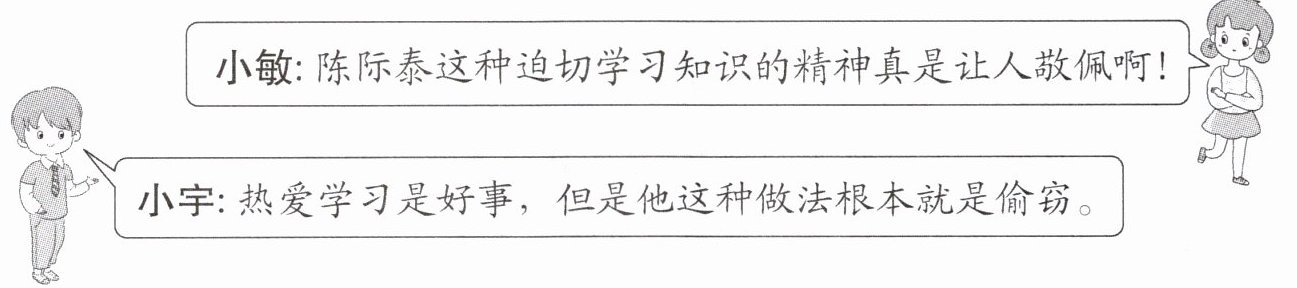 小敏: 陈际泰这种迫切学习知识的精神真是让人敬佩啊!
小宇: 热爱学习是好事，但是他这种做法根本就是偷窃。